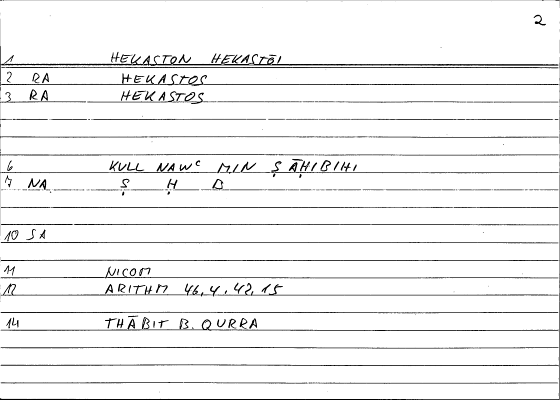 2
1 HEKASTON HEKASTŌI
2 RA HEKASTOS
3 RA HEKASTOS
6 KULL NAWᶜ MIN ṢĀḤIBIHI
7 NA Ṣ Ḥ B
10 SA
11 NICOM
12 ARITHM 46,4. 42,15
14 THĀBIT B. QURRA